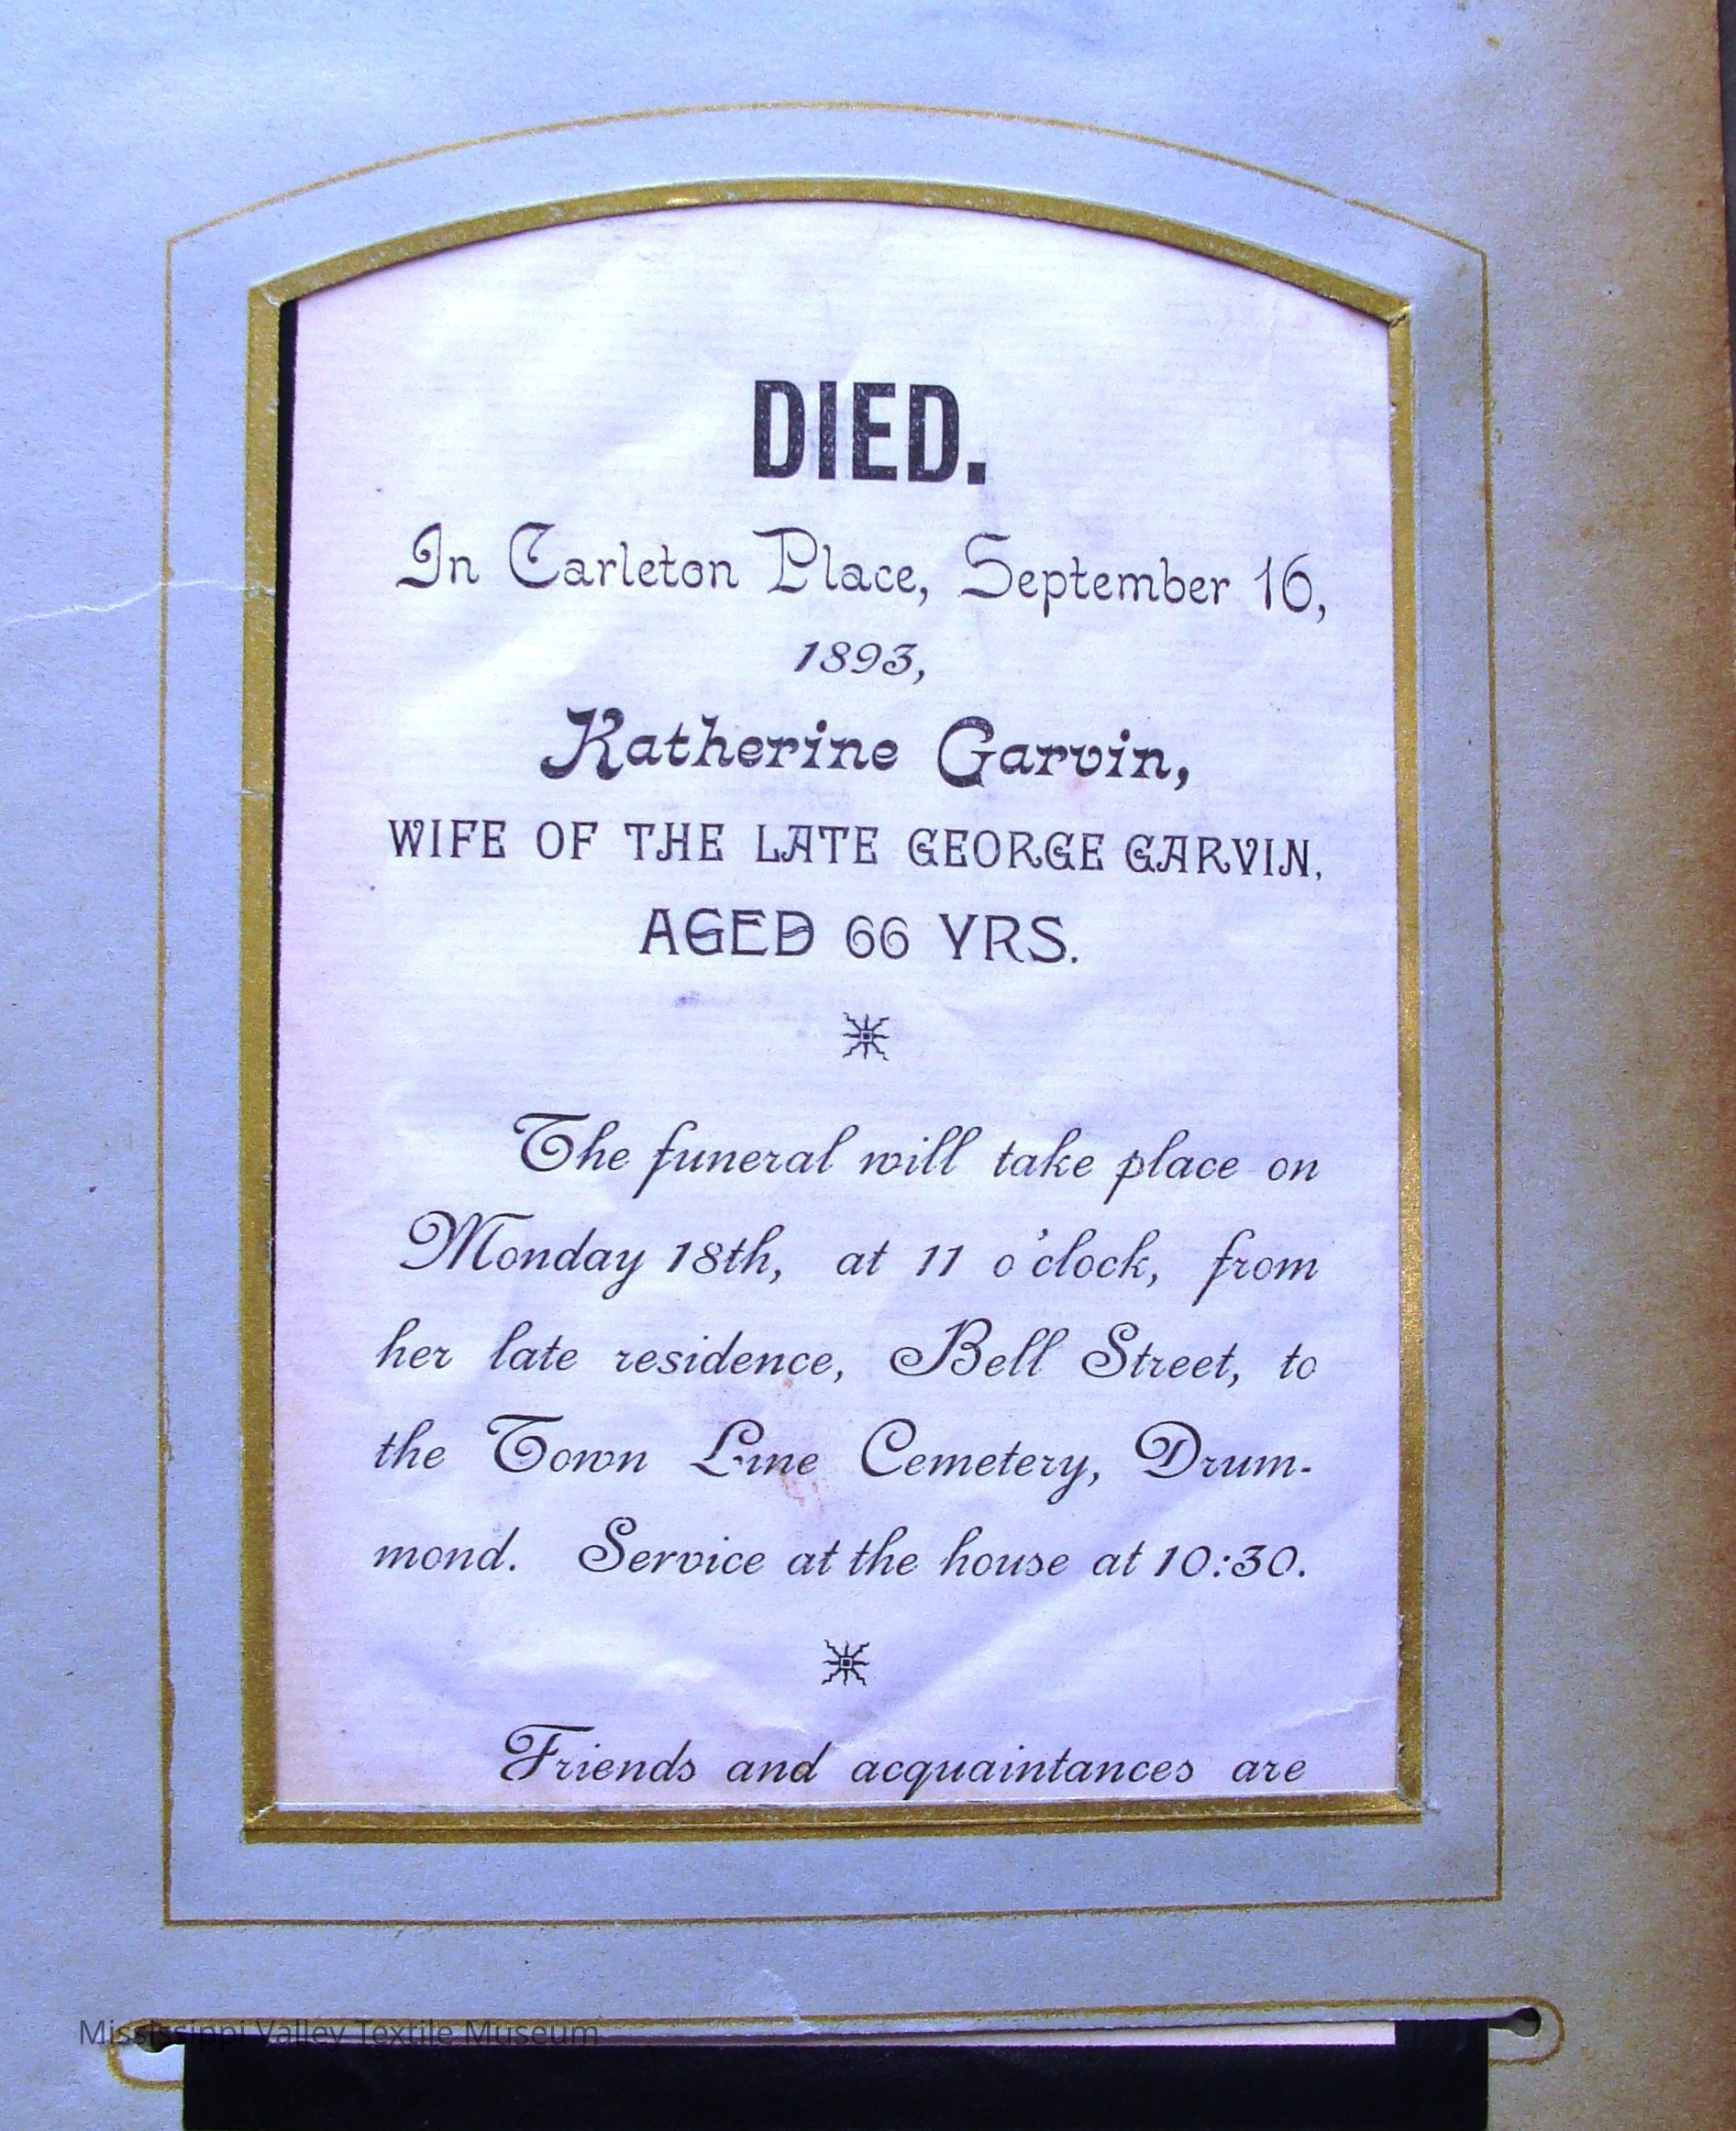 DIED.
In Carleton Place, September 16,
1893,
Katherine Garvin,
WIFE OF THE LATE GEORGE GARVIN,
AGED 66 YRS.
The funeral will take place on
Monday 18th, at 11 o'clock, from
her late residence, Bell Street, to
the Town Line Cemetery, Drum-
mond. Service at the house at 10:30.
Friends and acquaintances are
Mississippi Valley Textile Museum